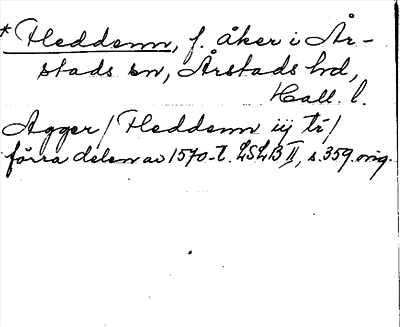 * Heddenn, f. åker i År-
stads sn, Årstads hd,
Hall. l.
Agger / Heddenn iij tr /
förra delen av 1570-t. LSLB II, s. 359. orig.